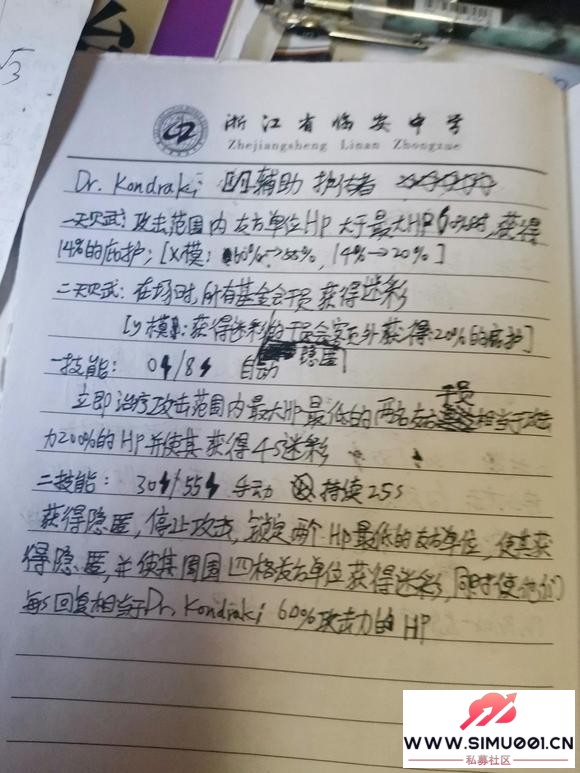 √3
浙江省临安中学
Zhejiangsheng Linan Zhongxue
Dr. Kondraki 辅助 护佑者
一天赋: 攻击范围内友方单位HP大于最大HP60%时, 获得
14%的庇护; [X模: 60%→55%, 14%→20%]
二天赋: 在场时, 所有基金会干员获得迷彩
[y模: 获得迷彩的干员会额外获得20%的庇护]
隐匿
一技能: 0/8 自动
干员
立即治疗攻击范围内最大HP最低的两名友方相当于攻击
力200%的HP并使其获得4s迷彩
二技能: 30/55 手动 持续25s
获得隐匿, 停止攻击, 锁定两个HP最低的友方单位, 使其获
得隐匿, 并使其周围四格友方单位获得迷彩, 同时使他们
每s回复相当于Dr. Kondraki 60%攻击力的HP
WWW.SIMU001.CN
私募社区